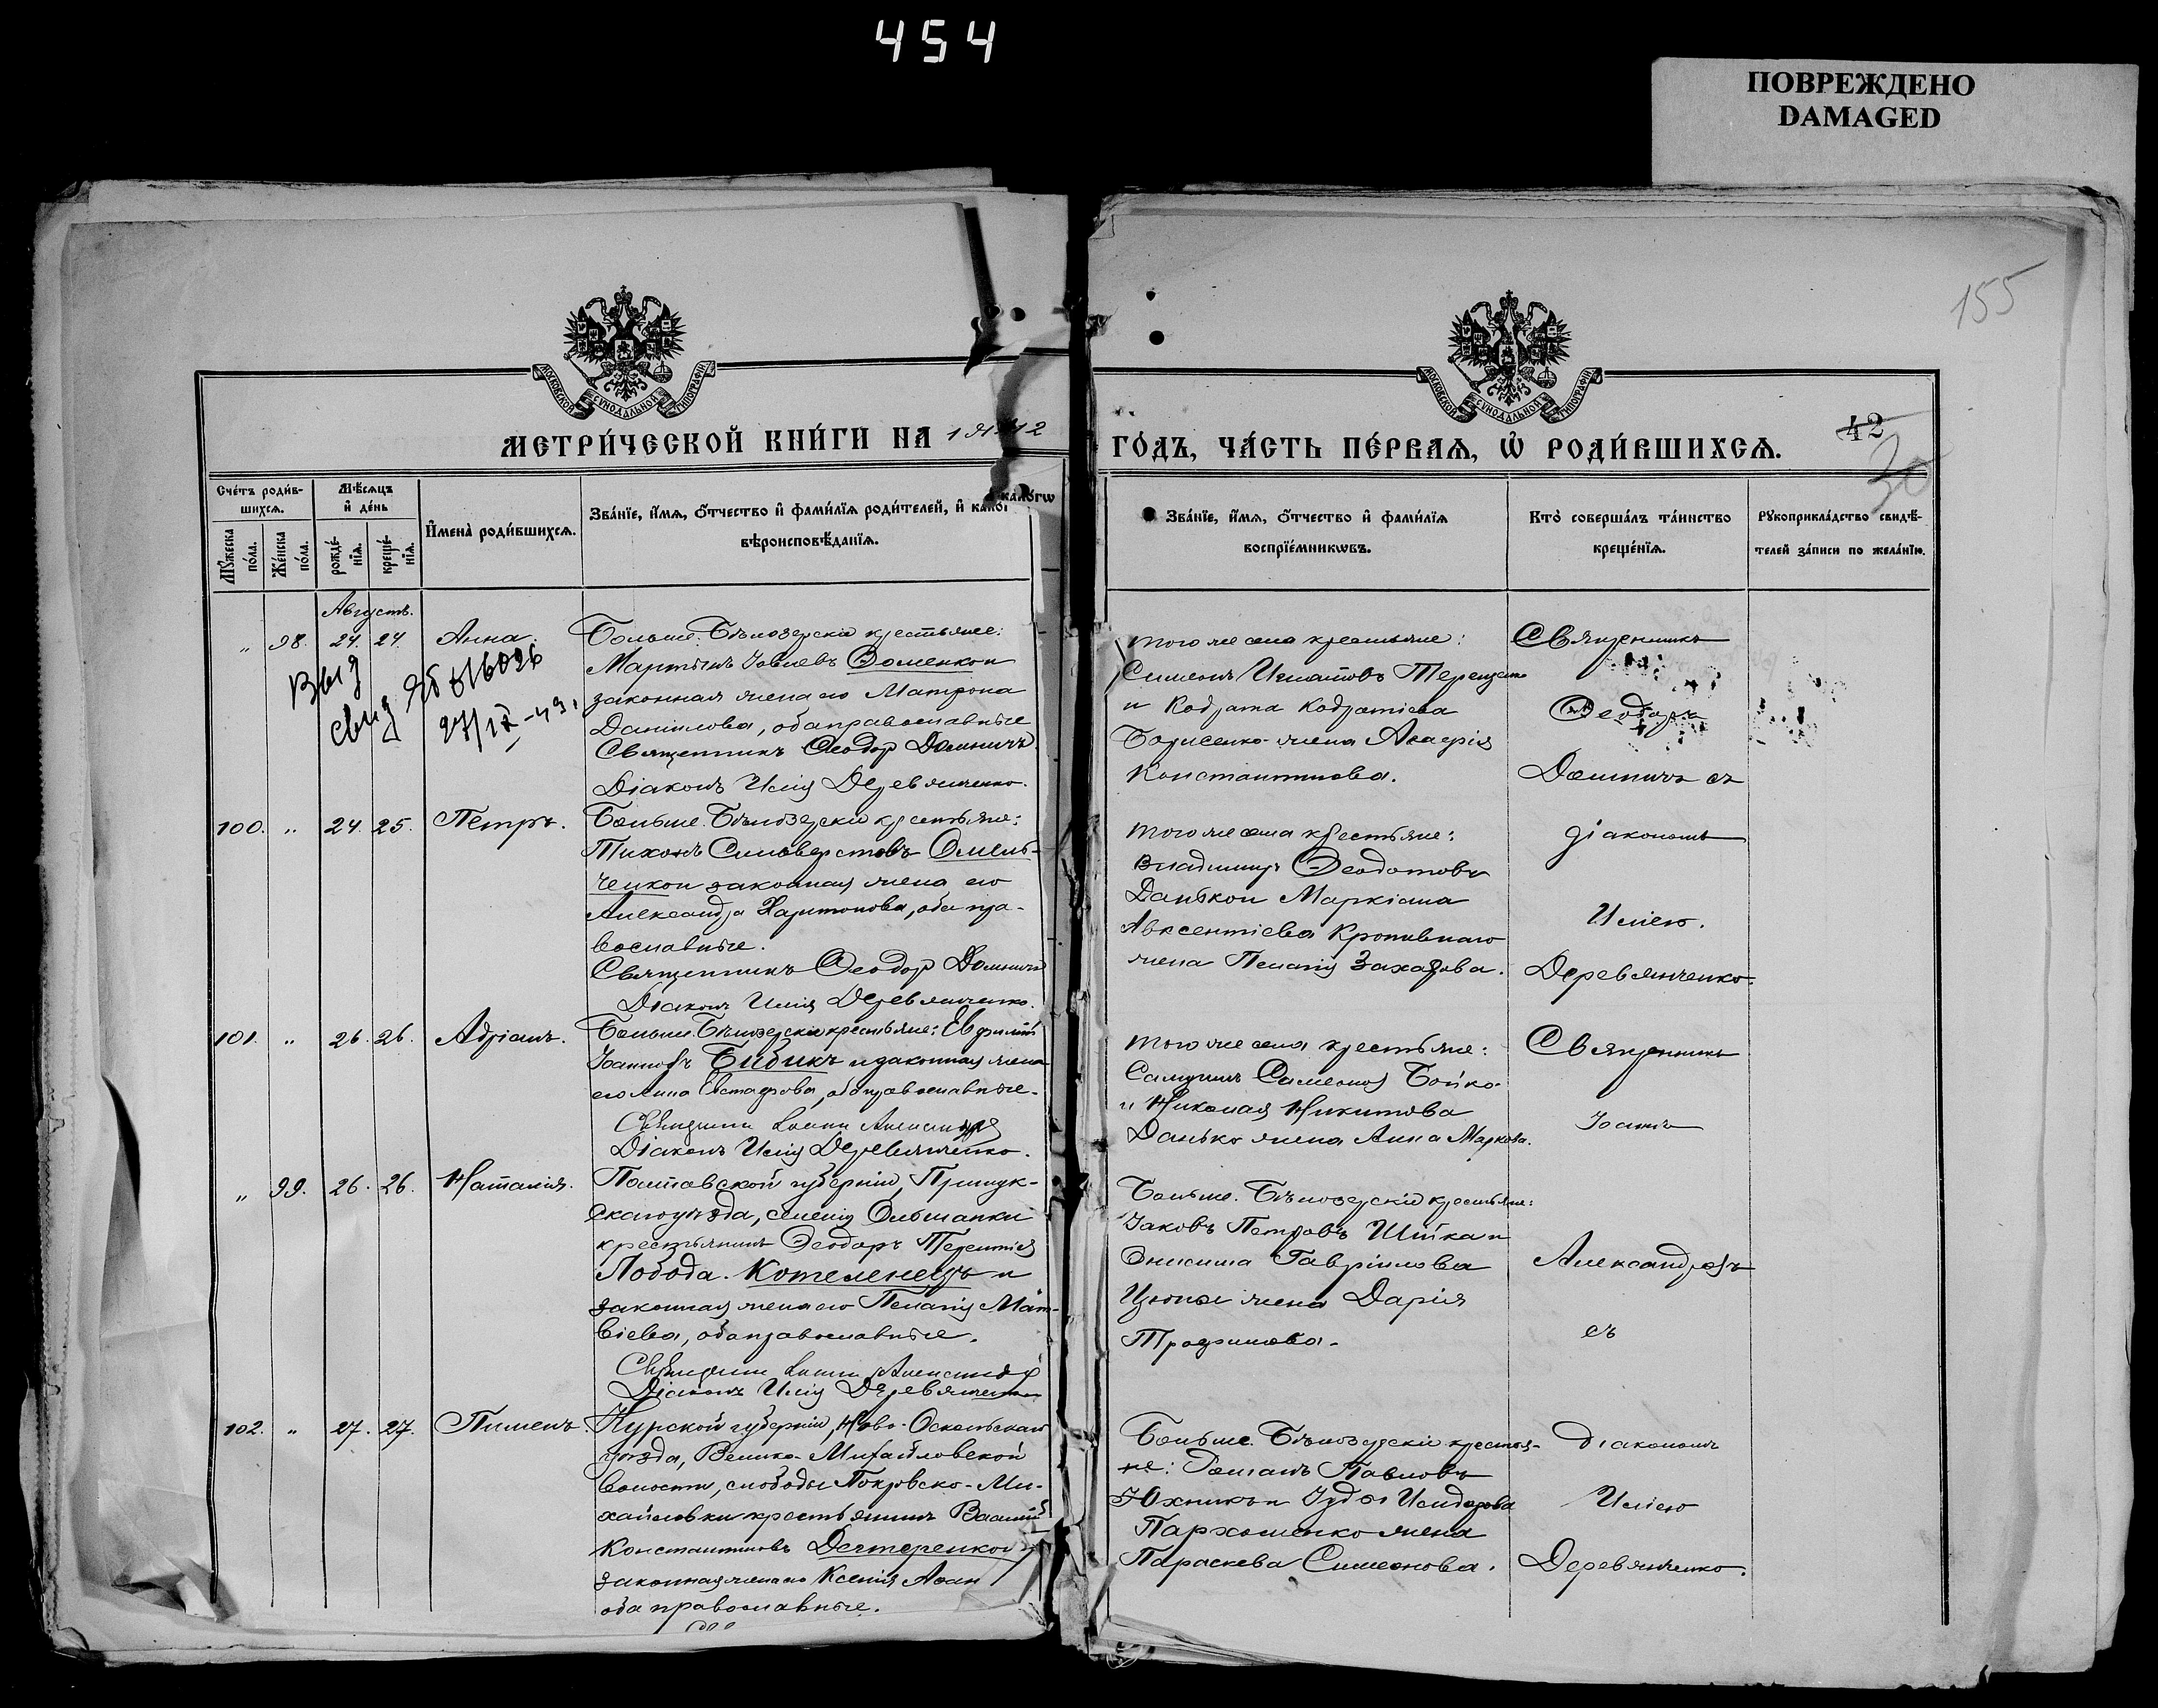 454
ПОВРЕЖДЕНО
DAMAGED
155
МОСКОВСКОЙ СѴНОДАЛЬНОЙ ТИПОГРАФІИ
МОСКОВСКОЙ СѴНОДАЛЬНОЙ ТИПОГРАФІИ
42
30
МЕТРИ́ЧЕСКОЙ КНИ́ГИ НА 1912
ГО́ДЪ, ЧА́СТЬ ПЕ́РВАѦ, Ѡ҆ РОДИ́ВШИХСѦ.
Сче́тъ роди́в-
шихсѧ.
Мꙋ́жеска по́ла.
Же́нска по́ла.
Мѣ́сѧцъ
и҆ де́нь
рожде́-
нїѧ.
креще́-
нїѧ.
И҆мена̀ роди́вшихсѧ.
Зва́нїе, и҆́мѧ, ѻ҆́тчество и҆ фами́лїѧ роди́телей, и҆ како́гѡ
вѣроисповѣ́данїѧ.
Зва́нїе, и҆́мѧ, ѻ҆́тчество и҆ фами́лїѧ
воспрїе́мникѡвъ.
Кто̀ соверша́лъ та́инство
креще́нїѧ.
Рꙋкоприкла́дство свидѣ́-
телей за́писи по жела́нїю.
Августъ.
„ 98. 24. 24. Анна.
Выд
свид ЯБ 016026
27/IX-49.
Больше-Бѣлозерскіе крестьяне:
Мартинъ Іовлевъ Доменко и
законная жена его Матрона
Данилова, оба православные
Священникъ Ѳеодор Домничъ
Діаконъ Илія Деревянченко.
того же села крестьяне:
Симеонъ Игнатовъ Терещенко
и Кодрата Кодратіева
Борисенко жена Агафія
Константинова.
Священникъ
Ѳеодоръ
Домничъ съ
100. „ 24. 25. Петръ.
Больше-Бѣлозерскіе крестьяне:
Тихонъ Сильверстовъ Омель-
ченко и законная жена его
Александра Харитонова, оба пра-
вославные.
Священникъ Ѳеодор Домничъ
Діаконъ Илія Деревянченко.
того же села крестьяне:
Владимиръ Ѳеодотовъ
Данько и Маркіана
Авксентіева Кропивнаго
жена Пелагія Захарова.
діакономъ
Иліею.
Деревянченко.
101. „ 26. 26. Адріанъ.
Больше-Бѣлозерскіе крестьяне: Евфимій
Іоанновъ Бибикъ и законная жена
его Анна Евстафіева, оба православные.
Священникъ Іоаннъ Александровъ
Діаконъ Илія Деревянченко.
того же села крестьяне:
Самуилъ Симеоновъ Бойко
и Николая Никитова
Данько жена Анна Маркова.
Священникъ
Іоаннъ
„ 99. 26. 26. Наталія.
Полтавской губерніи, Прилук-
скаго уѣзда, селенія Ольшанки
крестьянинъ Ѳеодоръ Терентіев
Лобода-Котеленецъ и
законная жена его Пелагія Мат-
віева, оба православные.
Священникъ Іоаннъ Александровъ
Діаконъ Илія Деревянченко
Больше-Бѣлозерскіе крестьяне:
Іаковъ Петровъ Шійка и
Онисима Гавріилова
Цюпы жена Дарія
Трофимова.
Александровъ
съ
102. „ 27. 27. Пименъ.
Курской губерніи, Ново-Оскольскаго
уѣзда, Велико-Михайловской
волости, слободы Покровско-Ми-
хайловки крестьянинъ Василій
Константиновъ Дегтеренко и
законная жена его Ксенія
оба православные.
Больше-Бѣлозерскіе крестья-
не: Романъ Павловъ
Юхникъ и Іуды Исидорова
Пархоменко жена
Параскева Симеонова.
діакономъ
Иліею
Деревянченко.